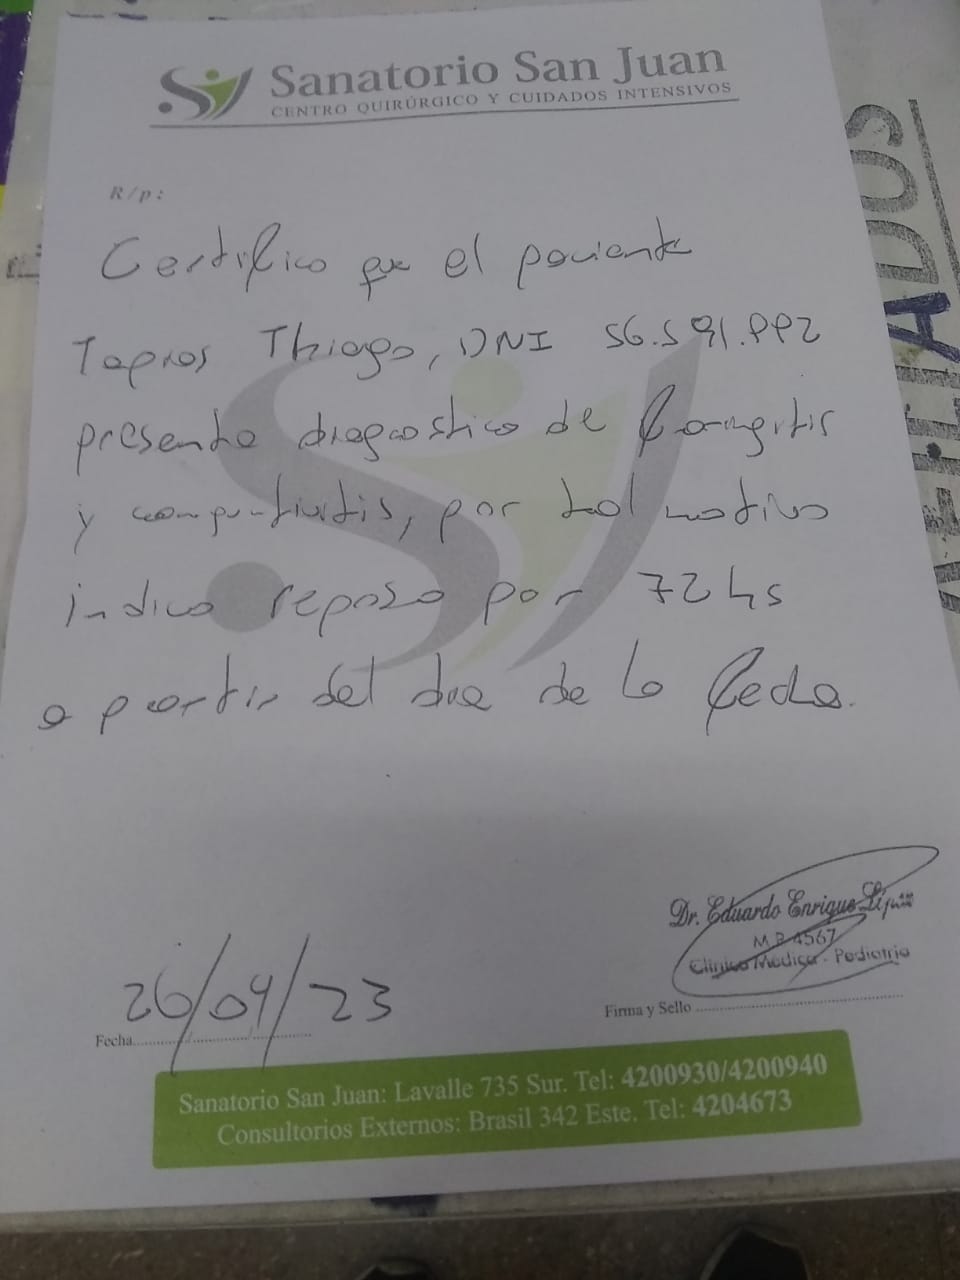 Sanatorio San Juan
CENTRO QUIRÚRGICO Y CUIDADOS INTENSIVOS
R/p:
Certifico que el paciente
Thiago, DNI 56.591.
presenta diagnostico de faringitis
y conjuntivitis, por tal motivo
indico reposo por 72 hs
a partir del dia de la fecha.
Dr. Eduardo Enrique
M.P. 4567
Clínica Médica - Pediatría
26/04/23
Fecha
Firma y Sello
Sanatorio San Juan: Lavalle 735 Sur. Tel: 4200930/4200940
Consultorios Externos: Brasil 342 Este. Tel: 4204673